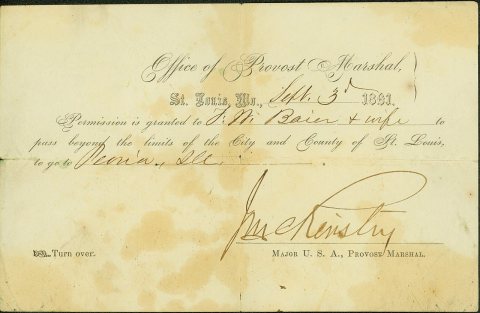 Office of Provost Marshal,
St. Louis, Mo., Sept. 3d 1861.
Permission is granted to F. W. Baier & wife to
pass beyond the limits of the City and County of St. Louis,
to go to Peoria, Ill.
J McKinstry
Turn over.
MAJOR U. S. A., PROVOST MARSHAL.